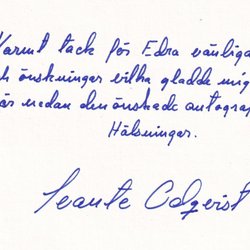 Varmt tack för Edra vänliga
och önskningar vilka gladde mig
här nedan den önskade autograf
Hälsningar.
Svante Odqvist